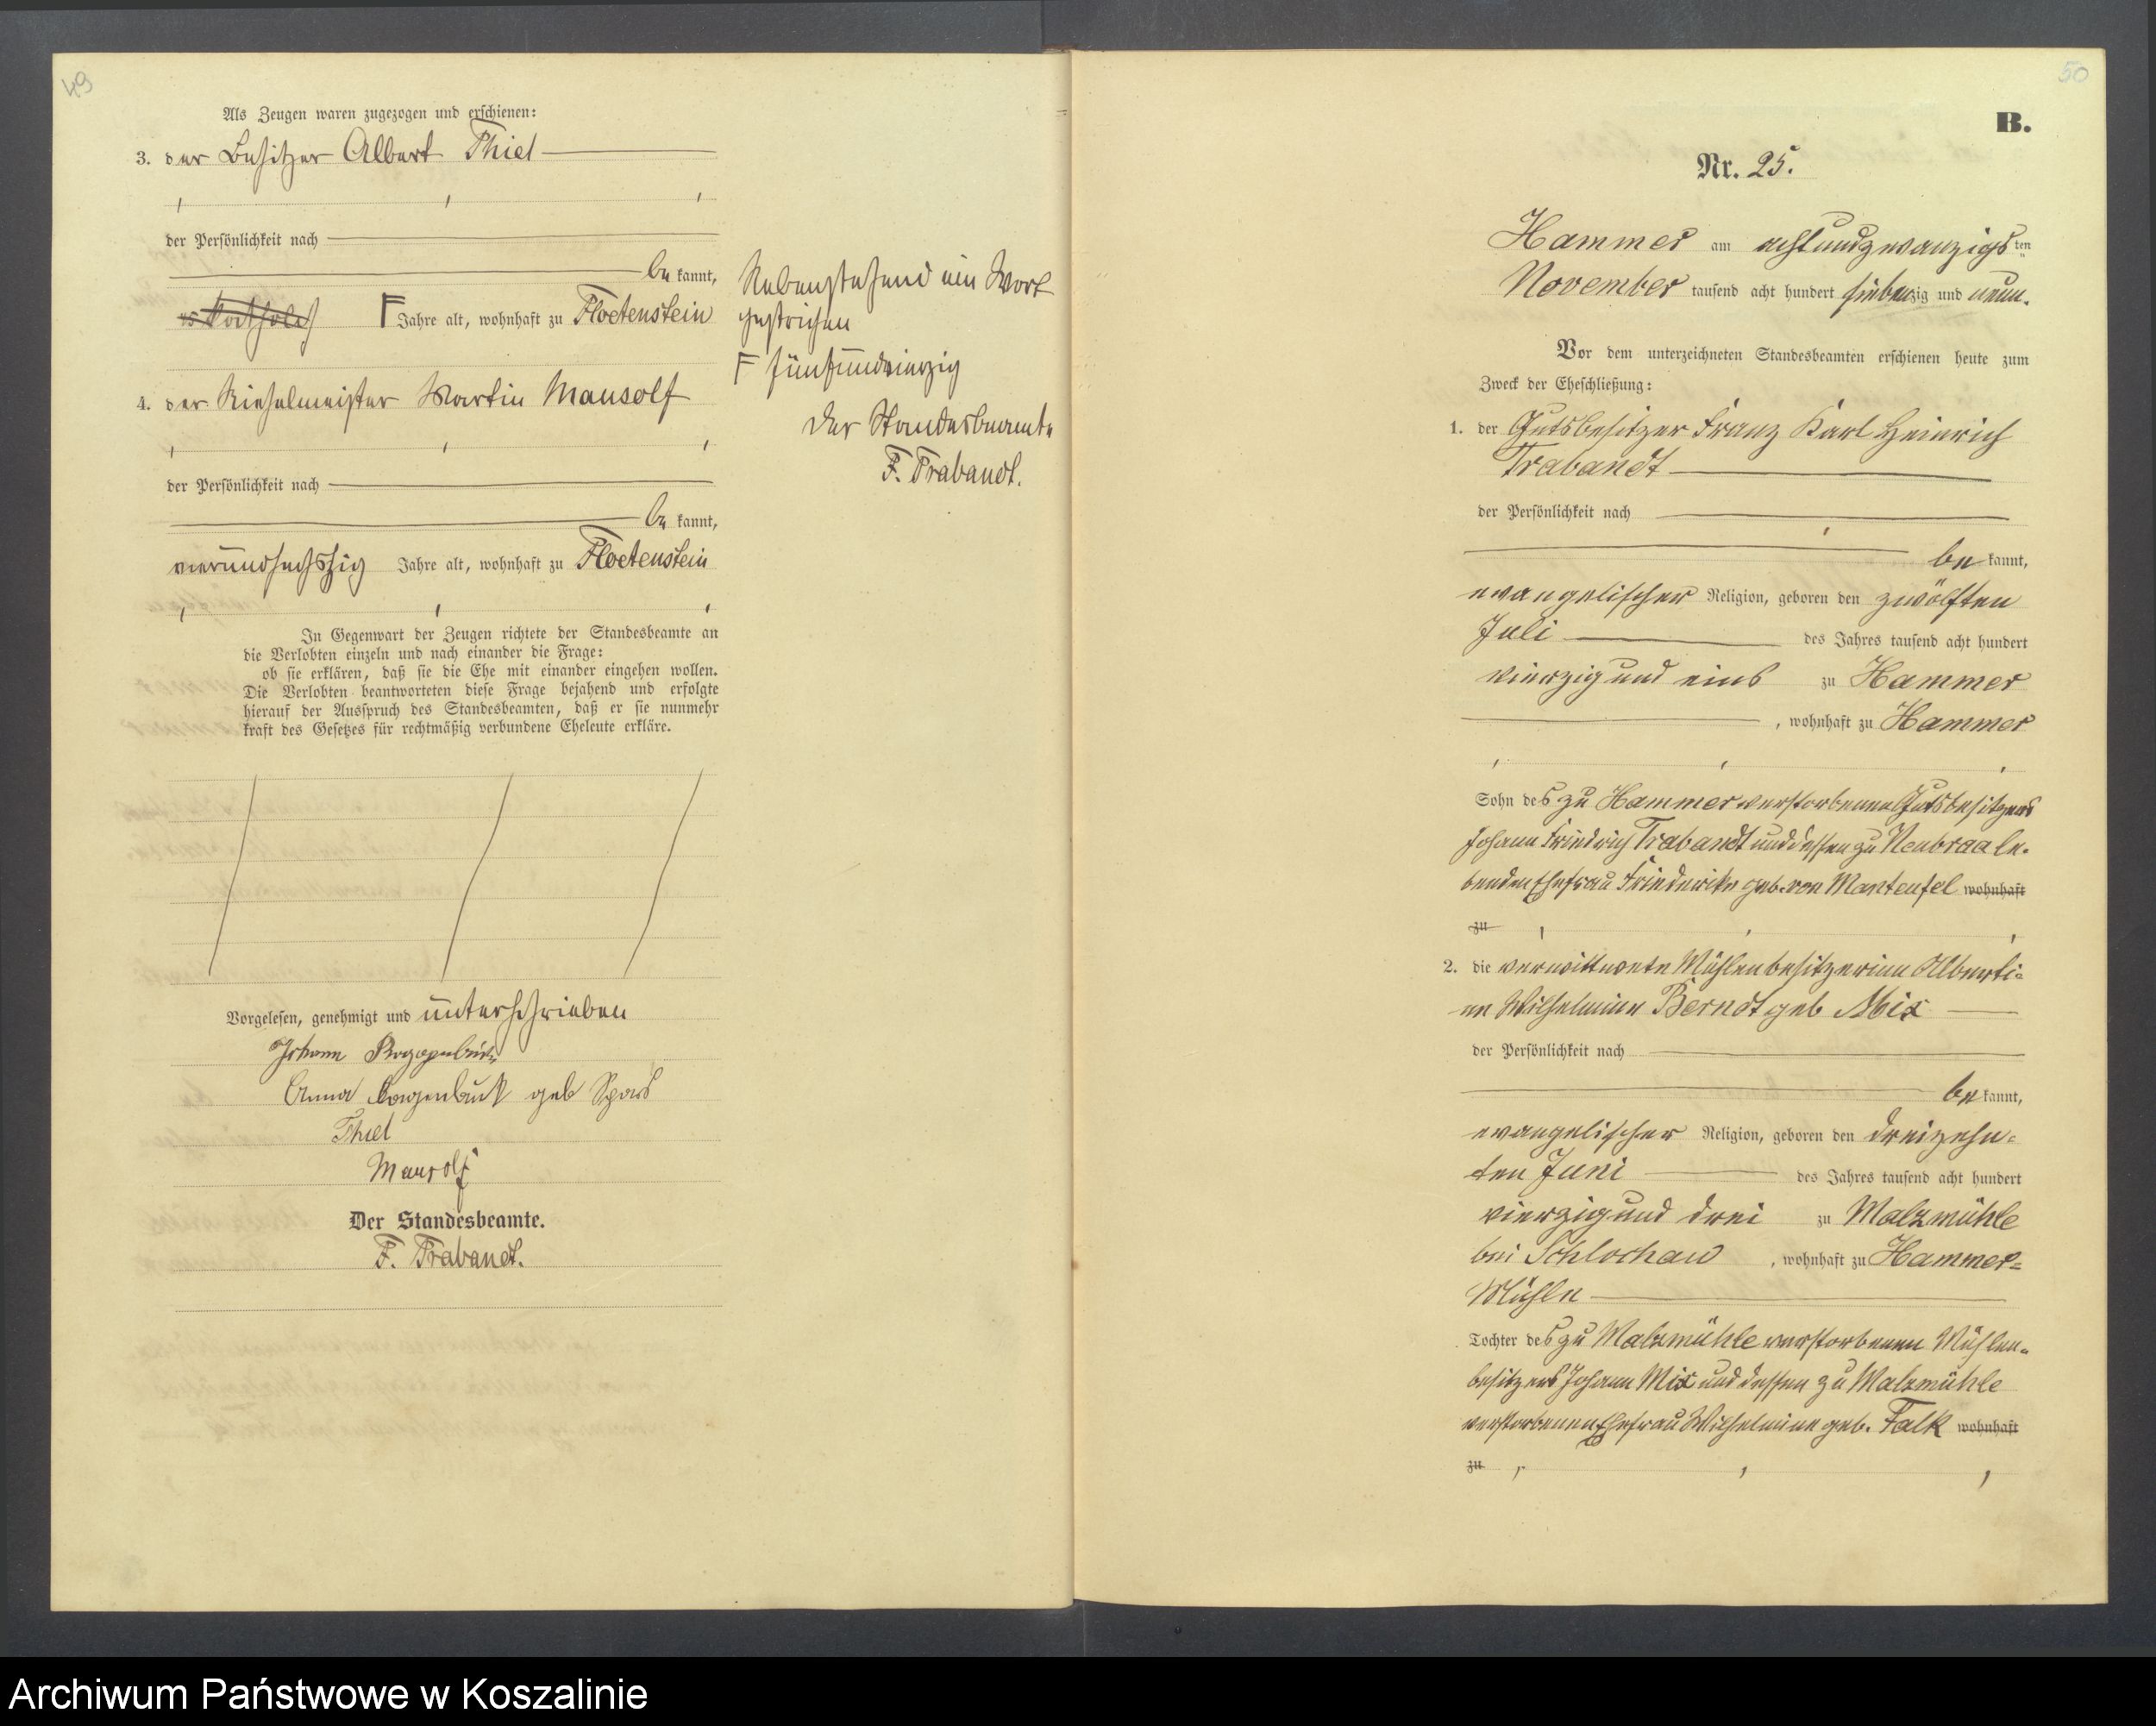 49
Als Zeugen waren zugezogen und erschienen:
3. der Besitzer Albert Thiel
der Persönlichkeit nach
be kannt,
Jahre alt, wohnhaft zu Floetenstein
4. der Rieselmeister Martin Mausolf
der Persönlichkeit nach
be kannt,
vierundsechszig Jahre alt, wohnhaft zu Floetenstein
In Gegenwart der Zeugen richtete der Standesbeamte an
die Verlobten einzeln und nach einander die Frage:
ob sie erklären, daß sie die Ehe mit einander eingehen wollen.
Die Verlobten beantworteten diese Frage bejahend und erfolgte
hierauf der Ausspruch des Standesbeamten, daß er sie nunmehr
kraft des Gesetzes für rechtmäßig verbundene Eheleute erkläre.
Vorgelesen, genehmigt und unterschrieben
Johann
Anna geb Spors
Thiel
Mausolf
Der Standesbeamte.
F. Trabandt.
Nebenstehend ein Wort
gestrichen
F fünfundvierzig
Der Standesbeamte
F. Trabandt.
50
B.
Nr. 25.
Hammer am achtundzwanzigsten
November tausend acht hundert siebenzig und neun.
Vor dem unterzeichneten Standesbeamten erschienen heute zum
Zweck der Eheschließung:
1. der Gutsbesitzer Franz Karl Heinrich
Trabandt
der Persönlichkeit nach
be kannt,
evangelischer Religion, geboren den zwölften
Juli des Jahres tausend acht hundert
vierzig und eins zu Hammer
, wohnhaft zu Hammer
Sohn des zu Hammer verstorbenen Gutsbesitzers
Johann Friedrich Trabandt und dessen zu Neubraa le-
benden Ehefrau Friederike geb. von Manteufel wohnhaft
zu
2. die verwittwete Mühlenbesitzerinn Alberti-
ne Wilhelmine Berndt geb Mix
der Persönlichkeit nach
be kannt,
evangelischer Religion, geboren den dreizehn-
ten Juni des Jahres tausend acht hundert
vierzig und drei zu Malzmühle
bei Schlochau , wohnhaft zu Hammer-
Mühle
Tochter des zu Malzmühle verstorbenen Mühlen-
besitzers Johann Mix und dessen zu Malzmühle
verstorbenen Ehefrau Wilhelmine geb. Falk wohnhaft
zu
Archiwum Państwowe w Koszalinie